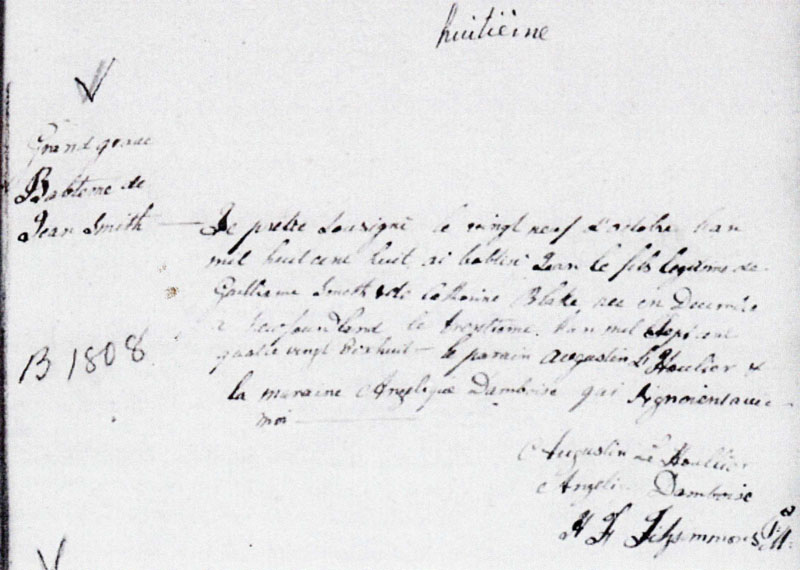 huitième
Grand grave
Babteme de
Jean Smith
Je pretre Sousigné le vingt neuf d'octobre l'an
mil huit cent huit ai babtisé Jean le fils legitime de
Guilliame Smith & de Catherine Blake née en Decembre
a Newfoundland le trentieme l'an mil Sept cent
quatre vingt dixhuit — le parain Augustin Le Houlier &
B 1808
la maraine Angelique Damboise qui Signoient avec
moi
Augustin Le Houllier
Angeli Damboise
Fitzsimmons